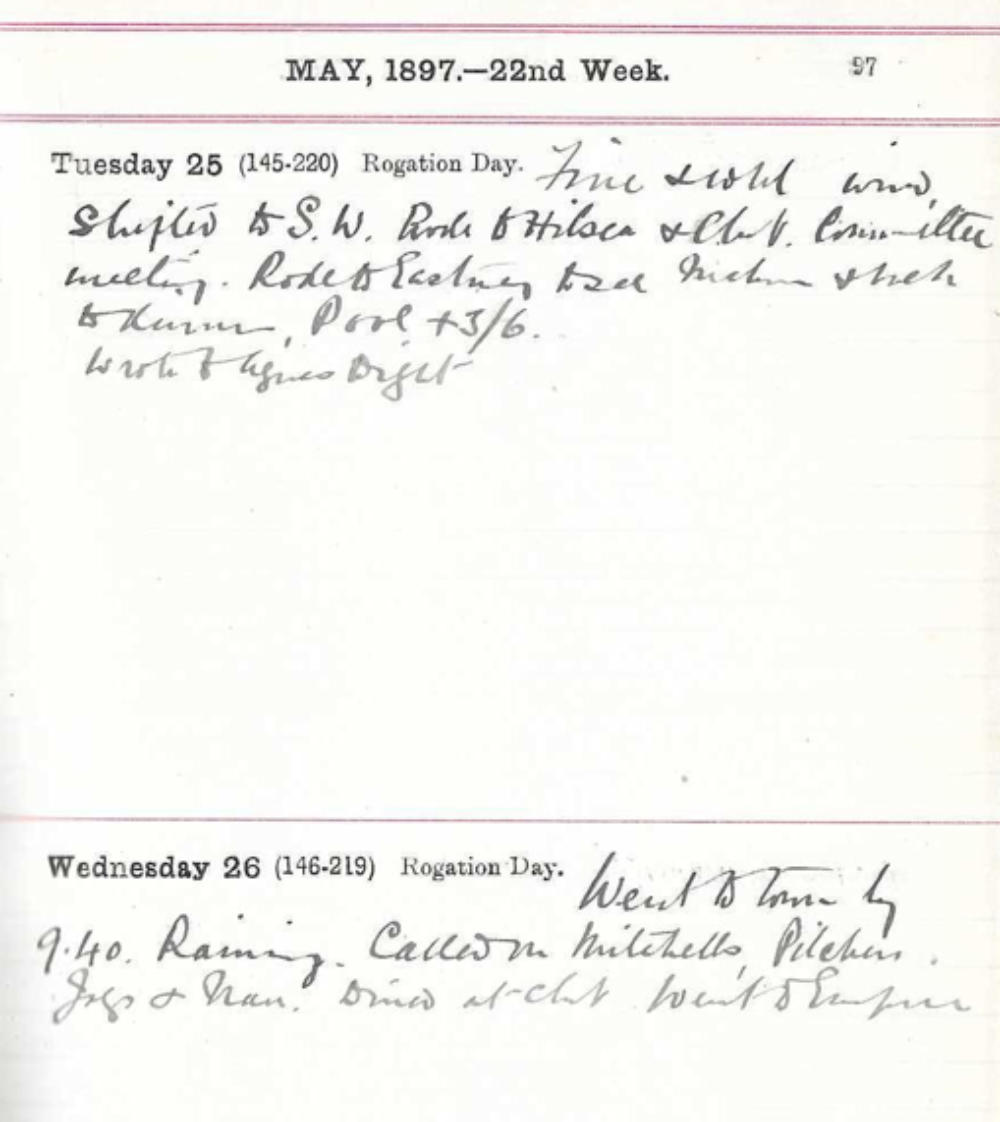 MAY, 1897.—22nd Week. 97
Tuesday 25 (145-220) Rogation Day. Fine & cold wind,
shifted to S.W. Rode to Hilsea & Club. Committee
meeting. Rode to Eastney to see &
to, Pool +3/6.
Wrote to Agnes
Wednesday 26 (146-219) Rogation Day. Went to town by
9.40. Raining. Called on Mitchells, Pilchers.
& Nan. Dined at club Went to Empire